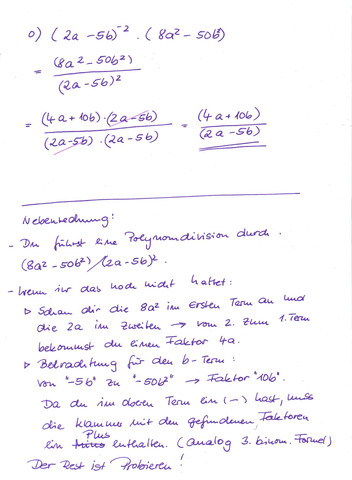 o) (2a - 5b)⁻² · (8a² - 50b²)
= (8a² - 50b²) / (2a - 5b)²
= (4a + 10b) · (2a - 5b) / (2a - 5b) · (2a - 5b) = (4a + 10b) / (2a - 5b)
Nebenrechnung:
- Du führst eine Polynomdivision durch.
(8a² - 50b²)/(2a - 5b)².
- Wenn ihr das noch nicht hattet:
▷ Schau dir die 8a² im ersten Term an und
die 2a im zweiten → vom 2. zum 1. Term
bekommst du einen Faktor 4a.
▷ Betrachtung für den b-Term:
von "-5b" zu "-50b²" → Faktor "10b".
Da du im oberen Term ein (-) hast, muss
die Klammer mit den gefundenen Faktoren
ein Plus enthalten. (analog 3. binom. Formel)
Der Rest ist Probieren!